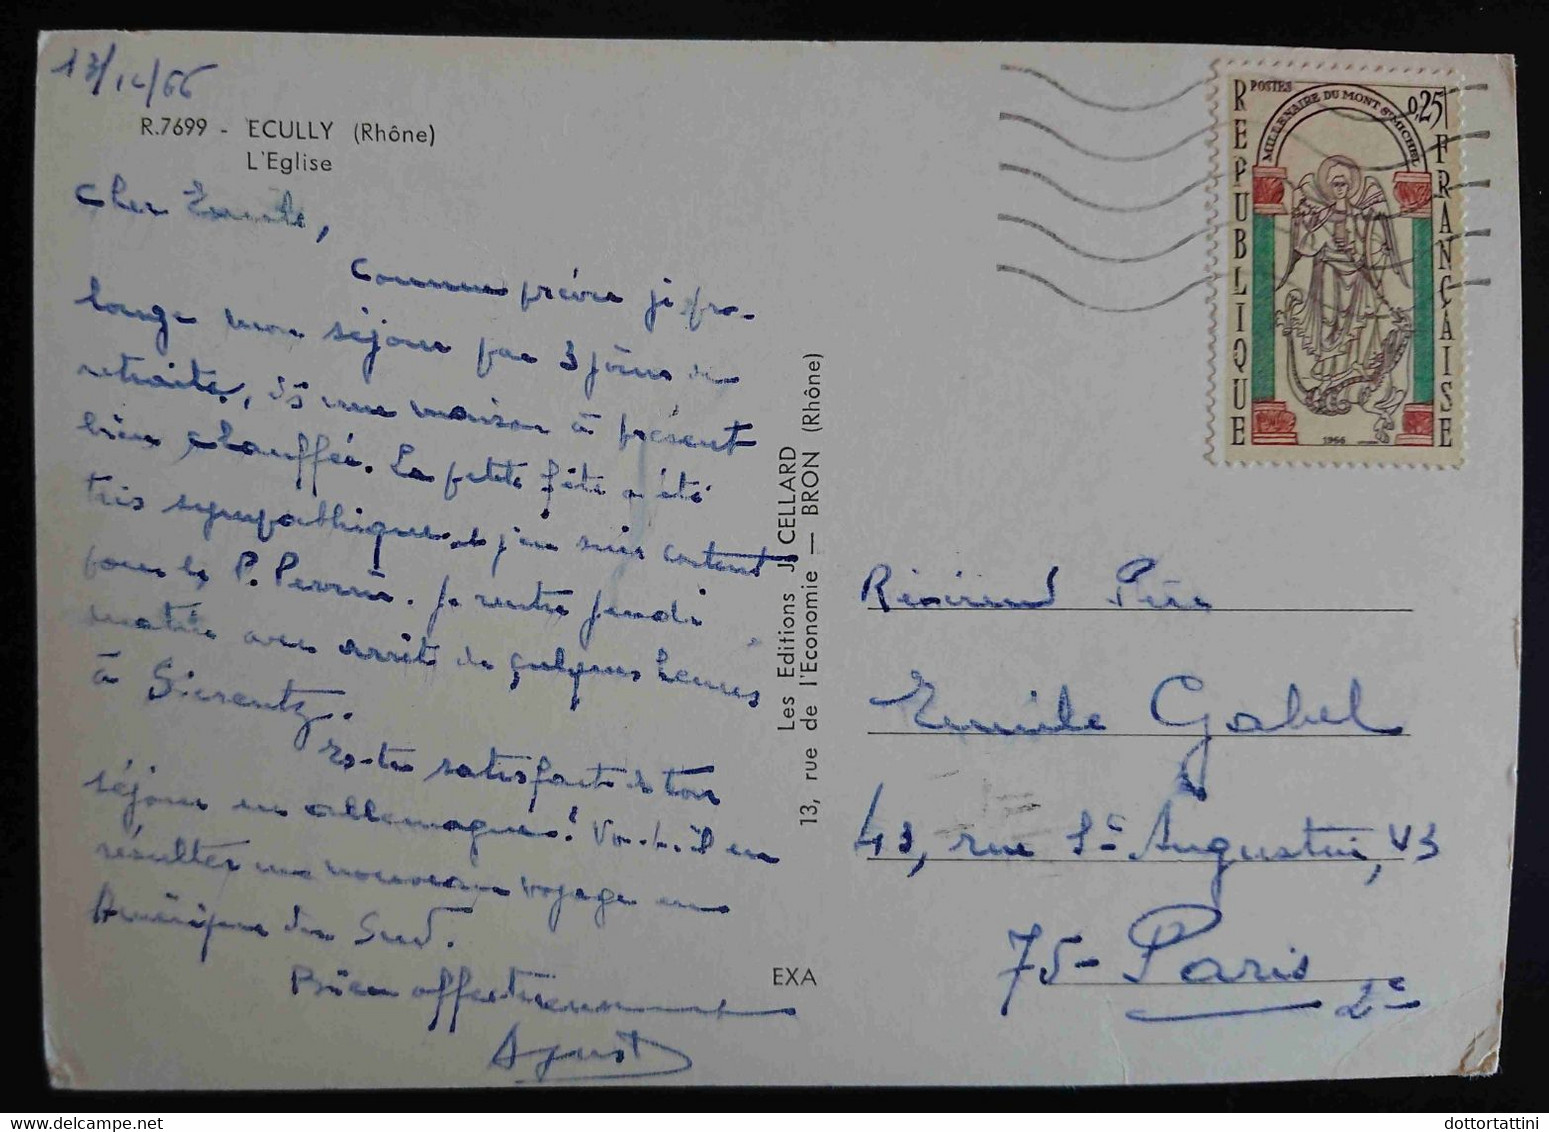 13/12/66
R.7699 - ECULLY (Rhône)
L'Eglise
Cher Emile,
Comme prévu je pro-
longe mon séjour par 3 jours de
retraite, ds une maison à présent
bien chauffée. La petite fête a été
très sympathique et j'en suis content
pour le P. Perrin. Je rentre jeudi
matin avec arrêt de quelques heures
à Sierentz.
Es-tu satisfait de ton
séjour en allemagne? Va-t-il en
résulter un nouveau voyage en
Amérique du Sud.
Bien affectueusement
Les Editions J. CELLARD
13, rue de l'Economie — BRON (Rhône)
EXA
POSTES
0,25
REPUBLIQUE FRANÇAISE
MILLENAIRE DU MONT ST MICHEL
1966
Révérend Père
Emile Gabel
43, rue St Augustin,
75 - Paris
2e
dottortattini